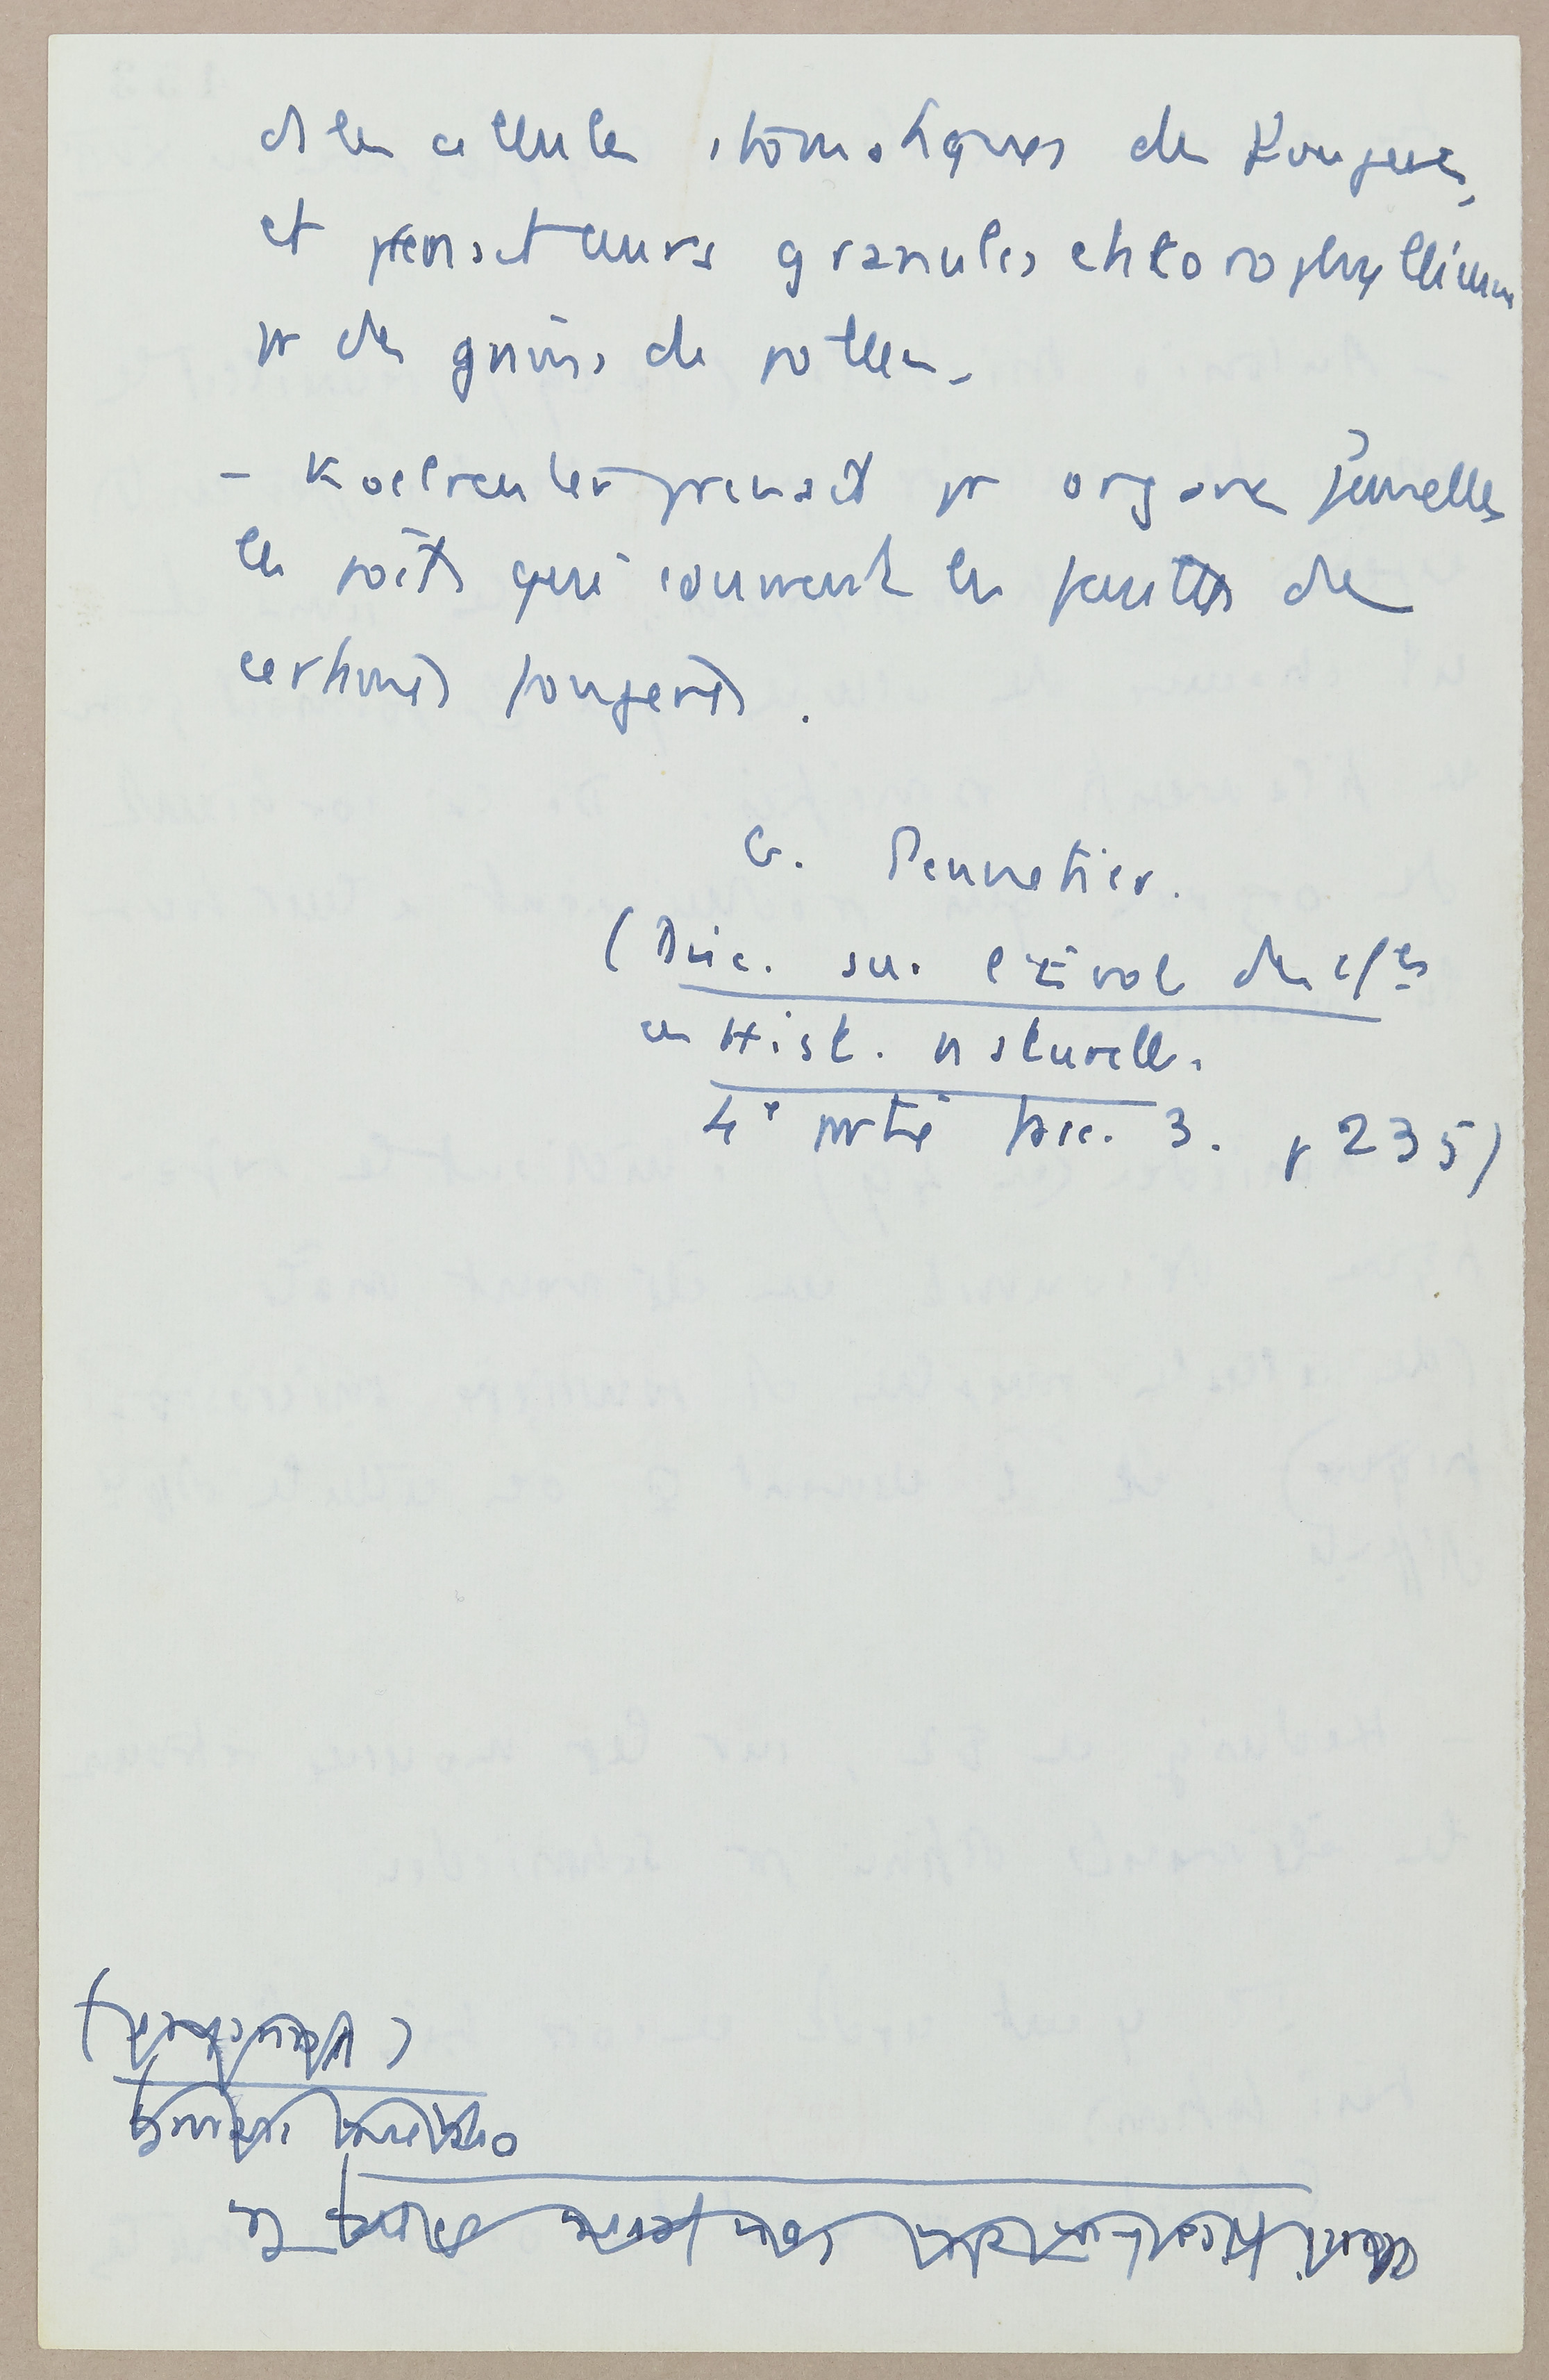 ds les cellules stomatiques des Fougeres,
et prenait leurs granules chlorophylliens
pr des grains de pollen.
- Koelreuter prenait pr organes femelles
les poils qui couvrent les feuilles de
certaines fougeres.
G. Pennetier.
(Disc. sur l'évol des c/ces
en Hist. naturelle.
4e partie fasc. 3. p 235)